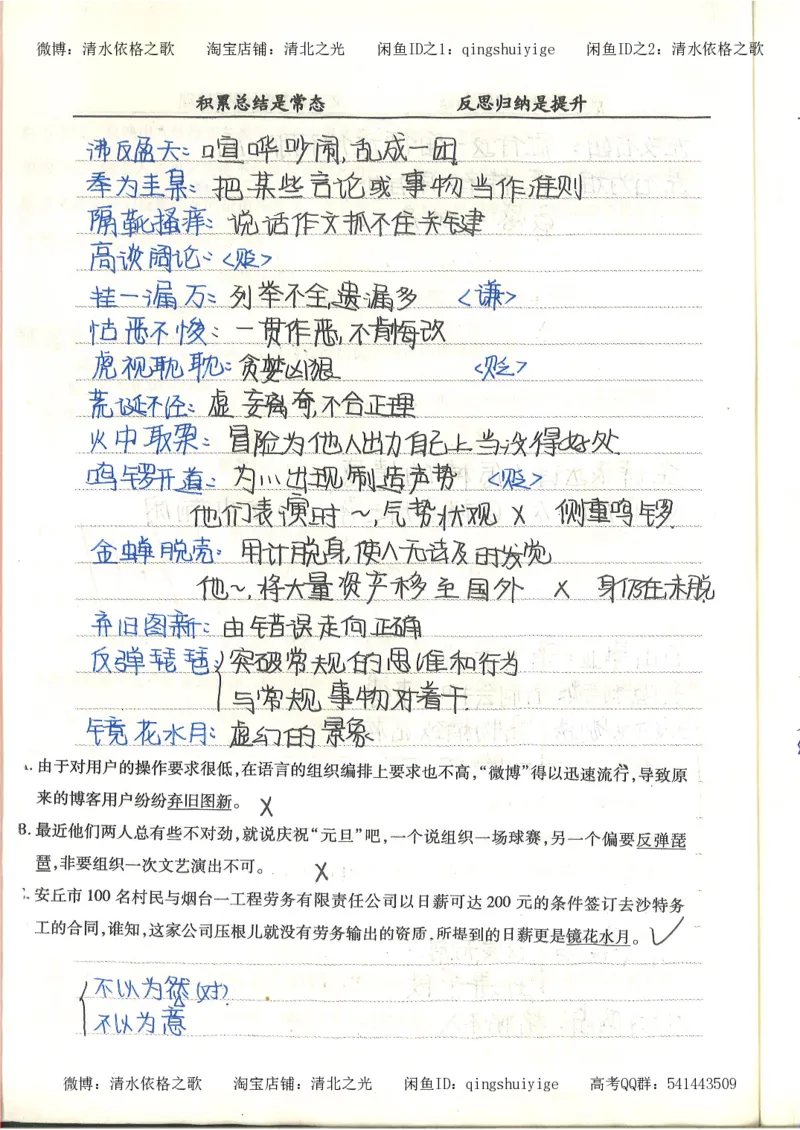 微博：清水依格之歌 淘宝店铺：清北之光 闲鱼ID之1：qingshuiyige 闲鱼ID之2：清水依格之歌
积累总结是常态 反思归纳是提升
沸反盈天：喧哗吵闹，乱成一团
奉为圭臬：把某些言论或事物当作准则
隔靴搔痒：说话作文抓不住关键
高谈阔论：<贬>
挂一漏万：列举不全，遗漏多 <谦>
怙恶不悛：一贯作恶，不肯悔改
虎视眈眈：贪婪凶狠 <贬>
荒诞不经：虚妄离奇，不合正理
火中取栗：冒险为他人出力自己上当没得好处
鸣锣开道：为…出现制造声势 <贬>
他们表演时～，气势状观 X 侧重鸣锣
金蝉脱壳：用计脱身，使人无法及时发觉
他～，将大量资产移至国外 X 身仍在，未脱
弃旧图新：由错误走向正确
反弹琵琶：突破常规的思维和行为
与常规事物对着干
镜花水月：虚幻的景象
A. 由于对用户的操作要求很低，在语言的组织编排上要求也不高，“微博”得以迅速流行，导致原
来的博客用户纷纷弃旧图新。 X
B. 最近他们两人总有些不对劲，就说庆祝“元旦”吧，一个说组织一场球赛，另一个偏要反弹琵
琶，非要组织一次文艺演出不可。 X
C. 安丘市100名村民与烟台一工程劳务有限责任公司以日薪可达200元的条件签订去沙特务
工的合同，谁知，这家公司压根儿就没有劳务输出的资质，所提到的日薪更是镜花水月。✓
不以为然（对）
不以为意
微博：清水依格之歌 淘宝店铺：清北之光 闲鱼ID：qingshuiyige 高考QQ群：541443509